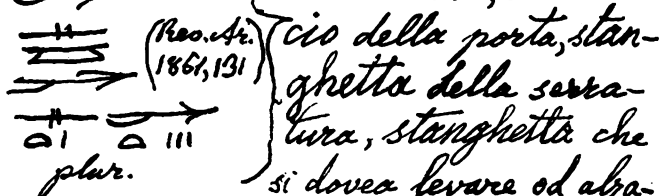 (Rev. Ar.
1861, 131)
plur.
cio della porta, stan-
ghetta della serra-
tura, stanghetta che
si dovea levare od alza-